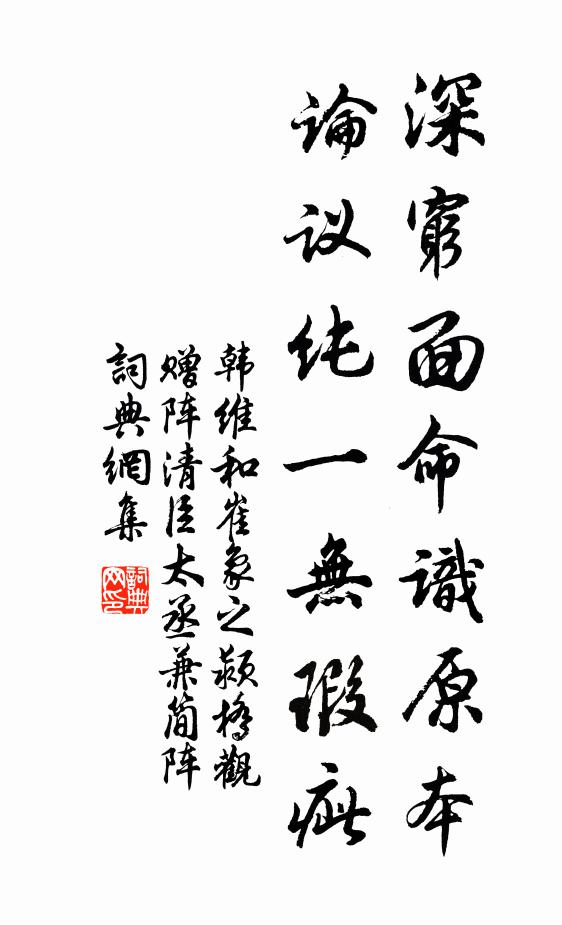 深窮面命識原本
論议纯一無瑕疵
韩维和崔象之颍橋觀
赠阵清臣太丞兼简阵
詞典網集
詞典网印